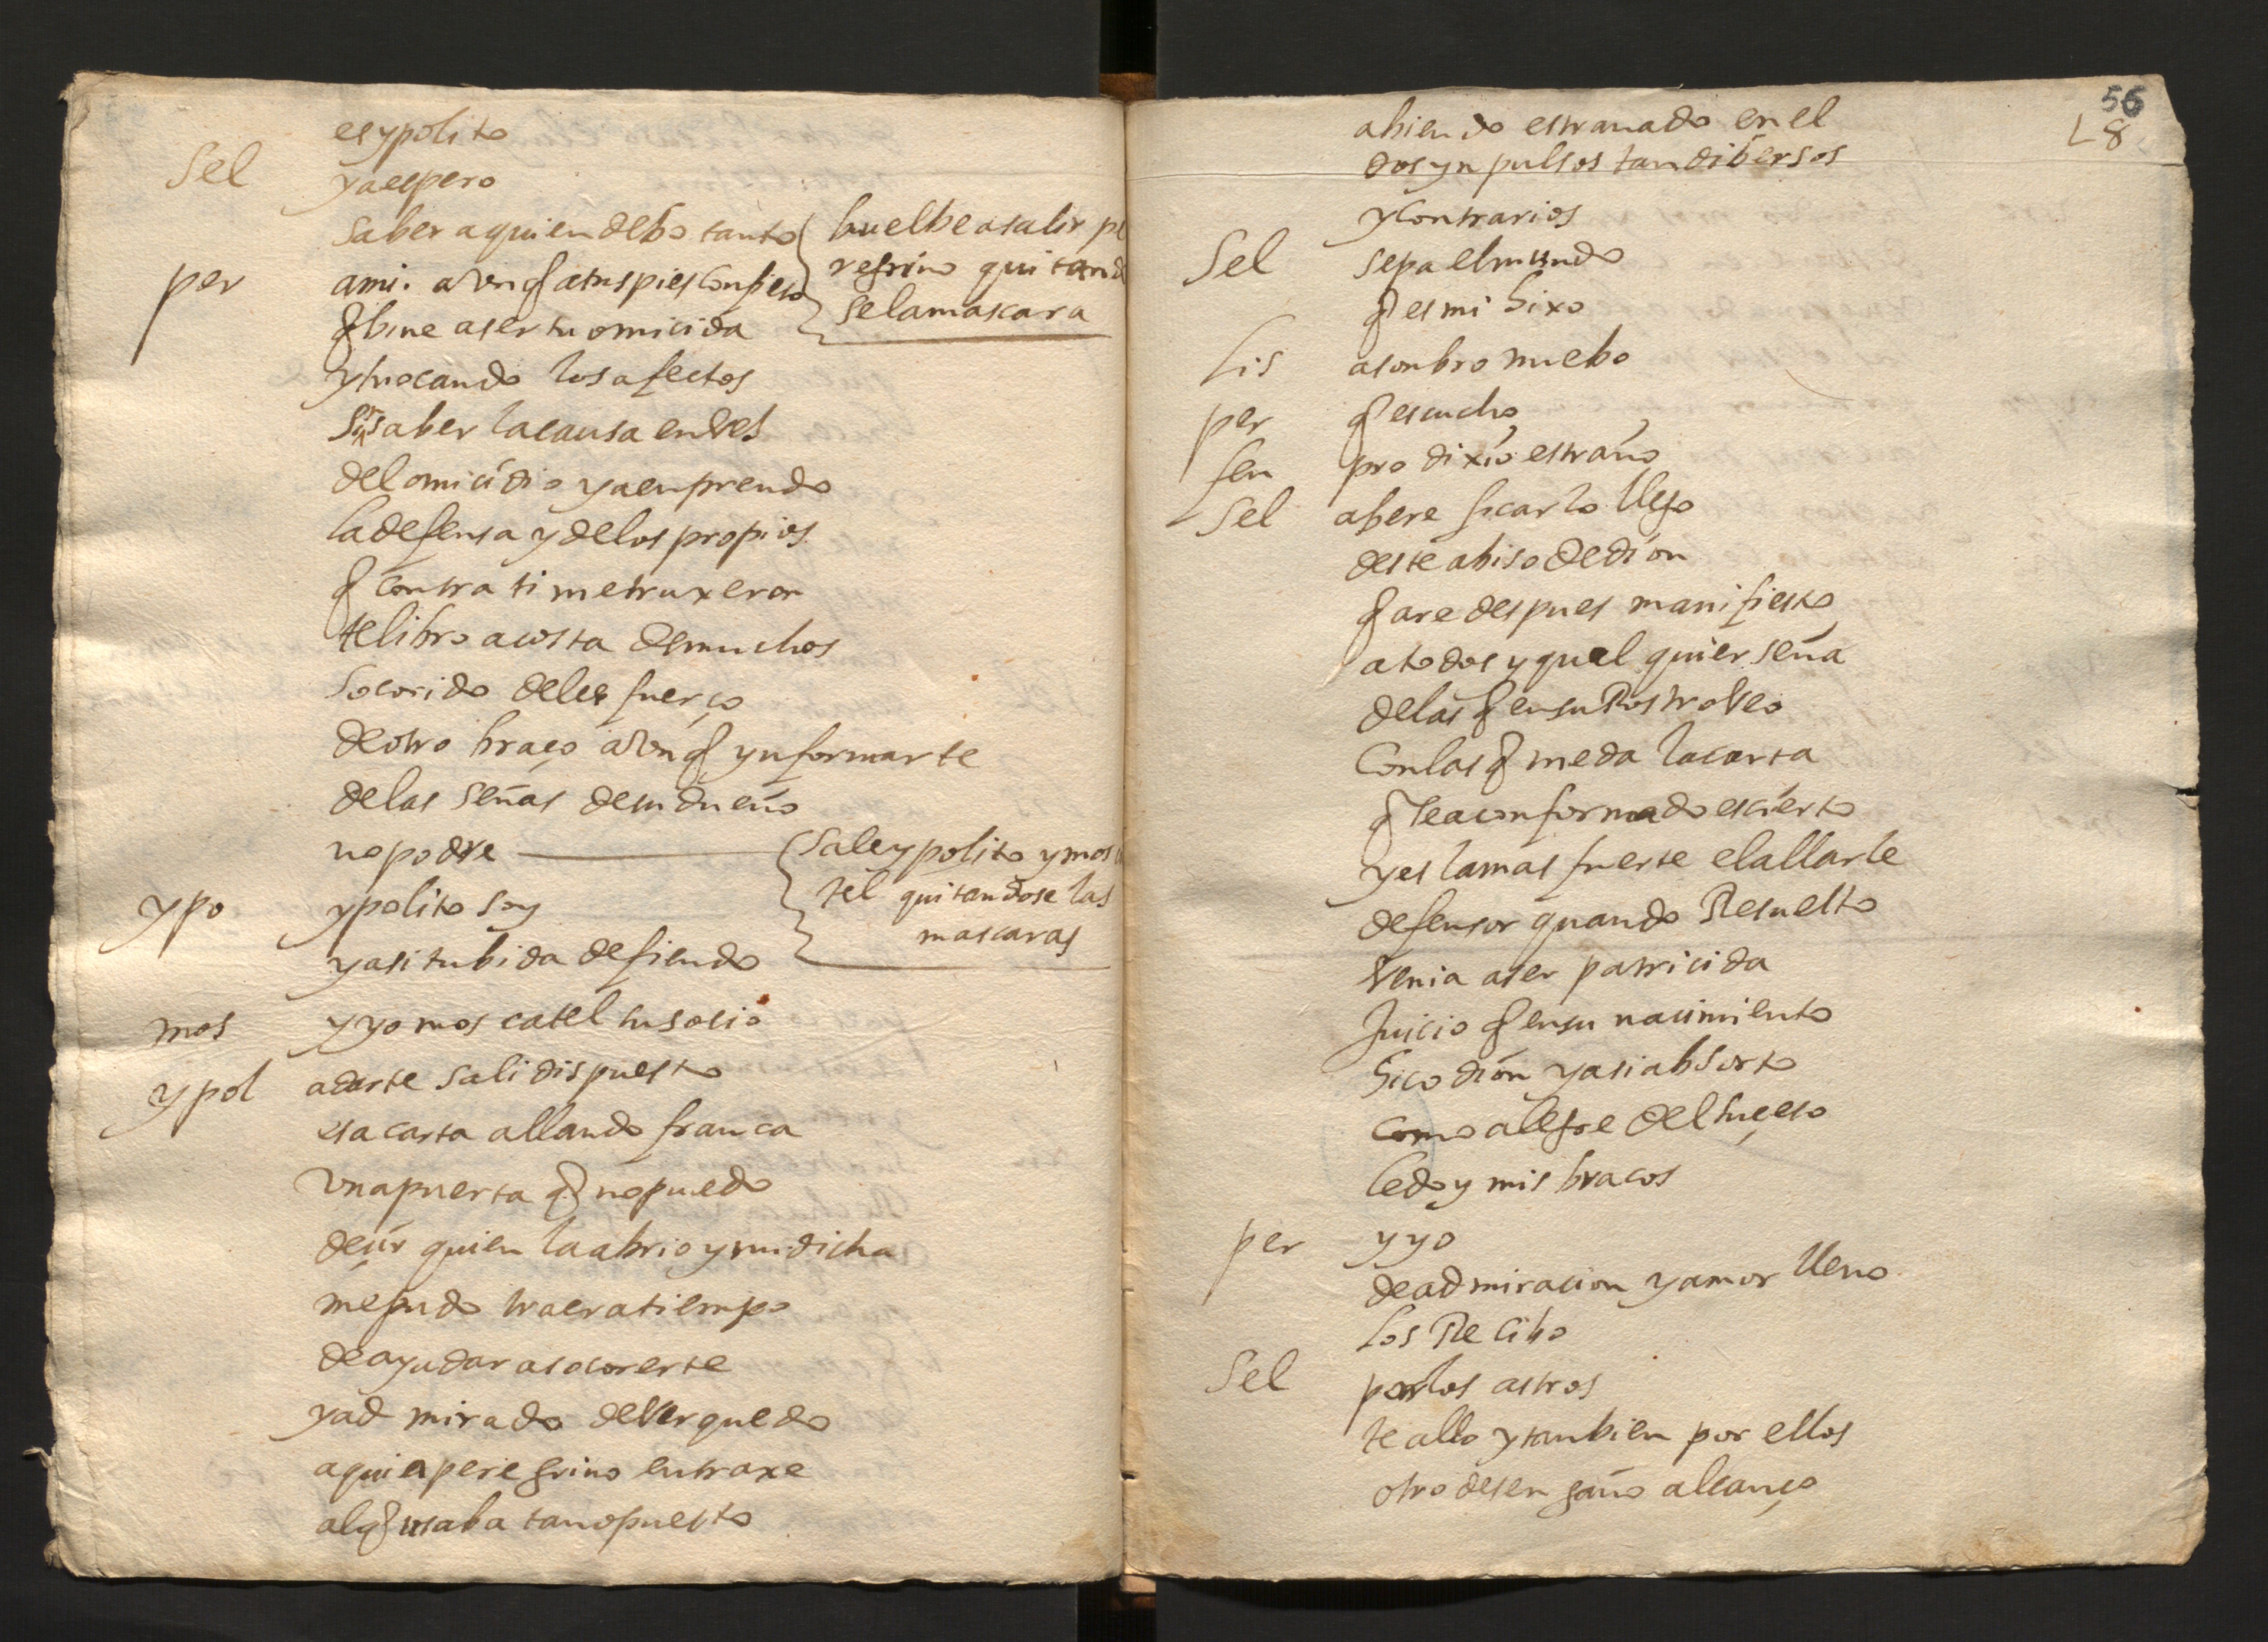 es ypolito
Sel ya espero
saber a quien debo tanto { buelbe a salir pe
per ami. avnq a tus pies confieso regrino quitand
q bine a ser tu omicida se la mascara
y trocando los afectos
sin saber la causa en vez
del omicidio ya enprendo
la defensa y de los propios
q contra ti me truxeron
te libro a costa de muchos
socorido del esfuerço
de otro braço avnq ynformarte
de las señas de su dueño
no podre { sale ypolito y mosca
ypo ypolito soy tel quitandose las
y asi tu bida defiendo mascaras
mos y yo moscatel su socio
ypol a darte sali dispuesto
esa carta allando franca
vna puerta q no puedo
deçir quien la abrio y mi dicha
me pudo traer a tiempo
de ayudar a socorerte
y admirado de ver quedo
aqui a peregrino en traxe
al q usaba tan opuesto
56
L 8
abiendo estranado en el
dos ynpulsos tan dibersos
y contrarios
Sel sepa el mundo
q es mi hixo
Lis asonbro nuebo
per q escucho
fen prodixio estraño
Sel a berificarlo llego
deste abiso de dion
q are despues manifiesto
a todos y qualquier seña
de las q en su Rostro veo
con las q me da la carta
q sea conformado es cierto
y es la mas fuerte el allarle
defensor quando Resuelto
venia a ser patricida
Juicio q en su nacimiento
hico dion y asi absorto
como alegre del suçeso
le doy mis bracos
per y yo
de admiracion y amor lleno
los Recibo
Sel por los astros
te allo y tanbien por ellos
otro desengaño alcanço